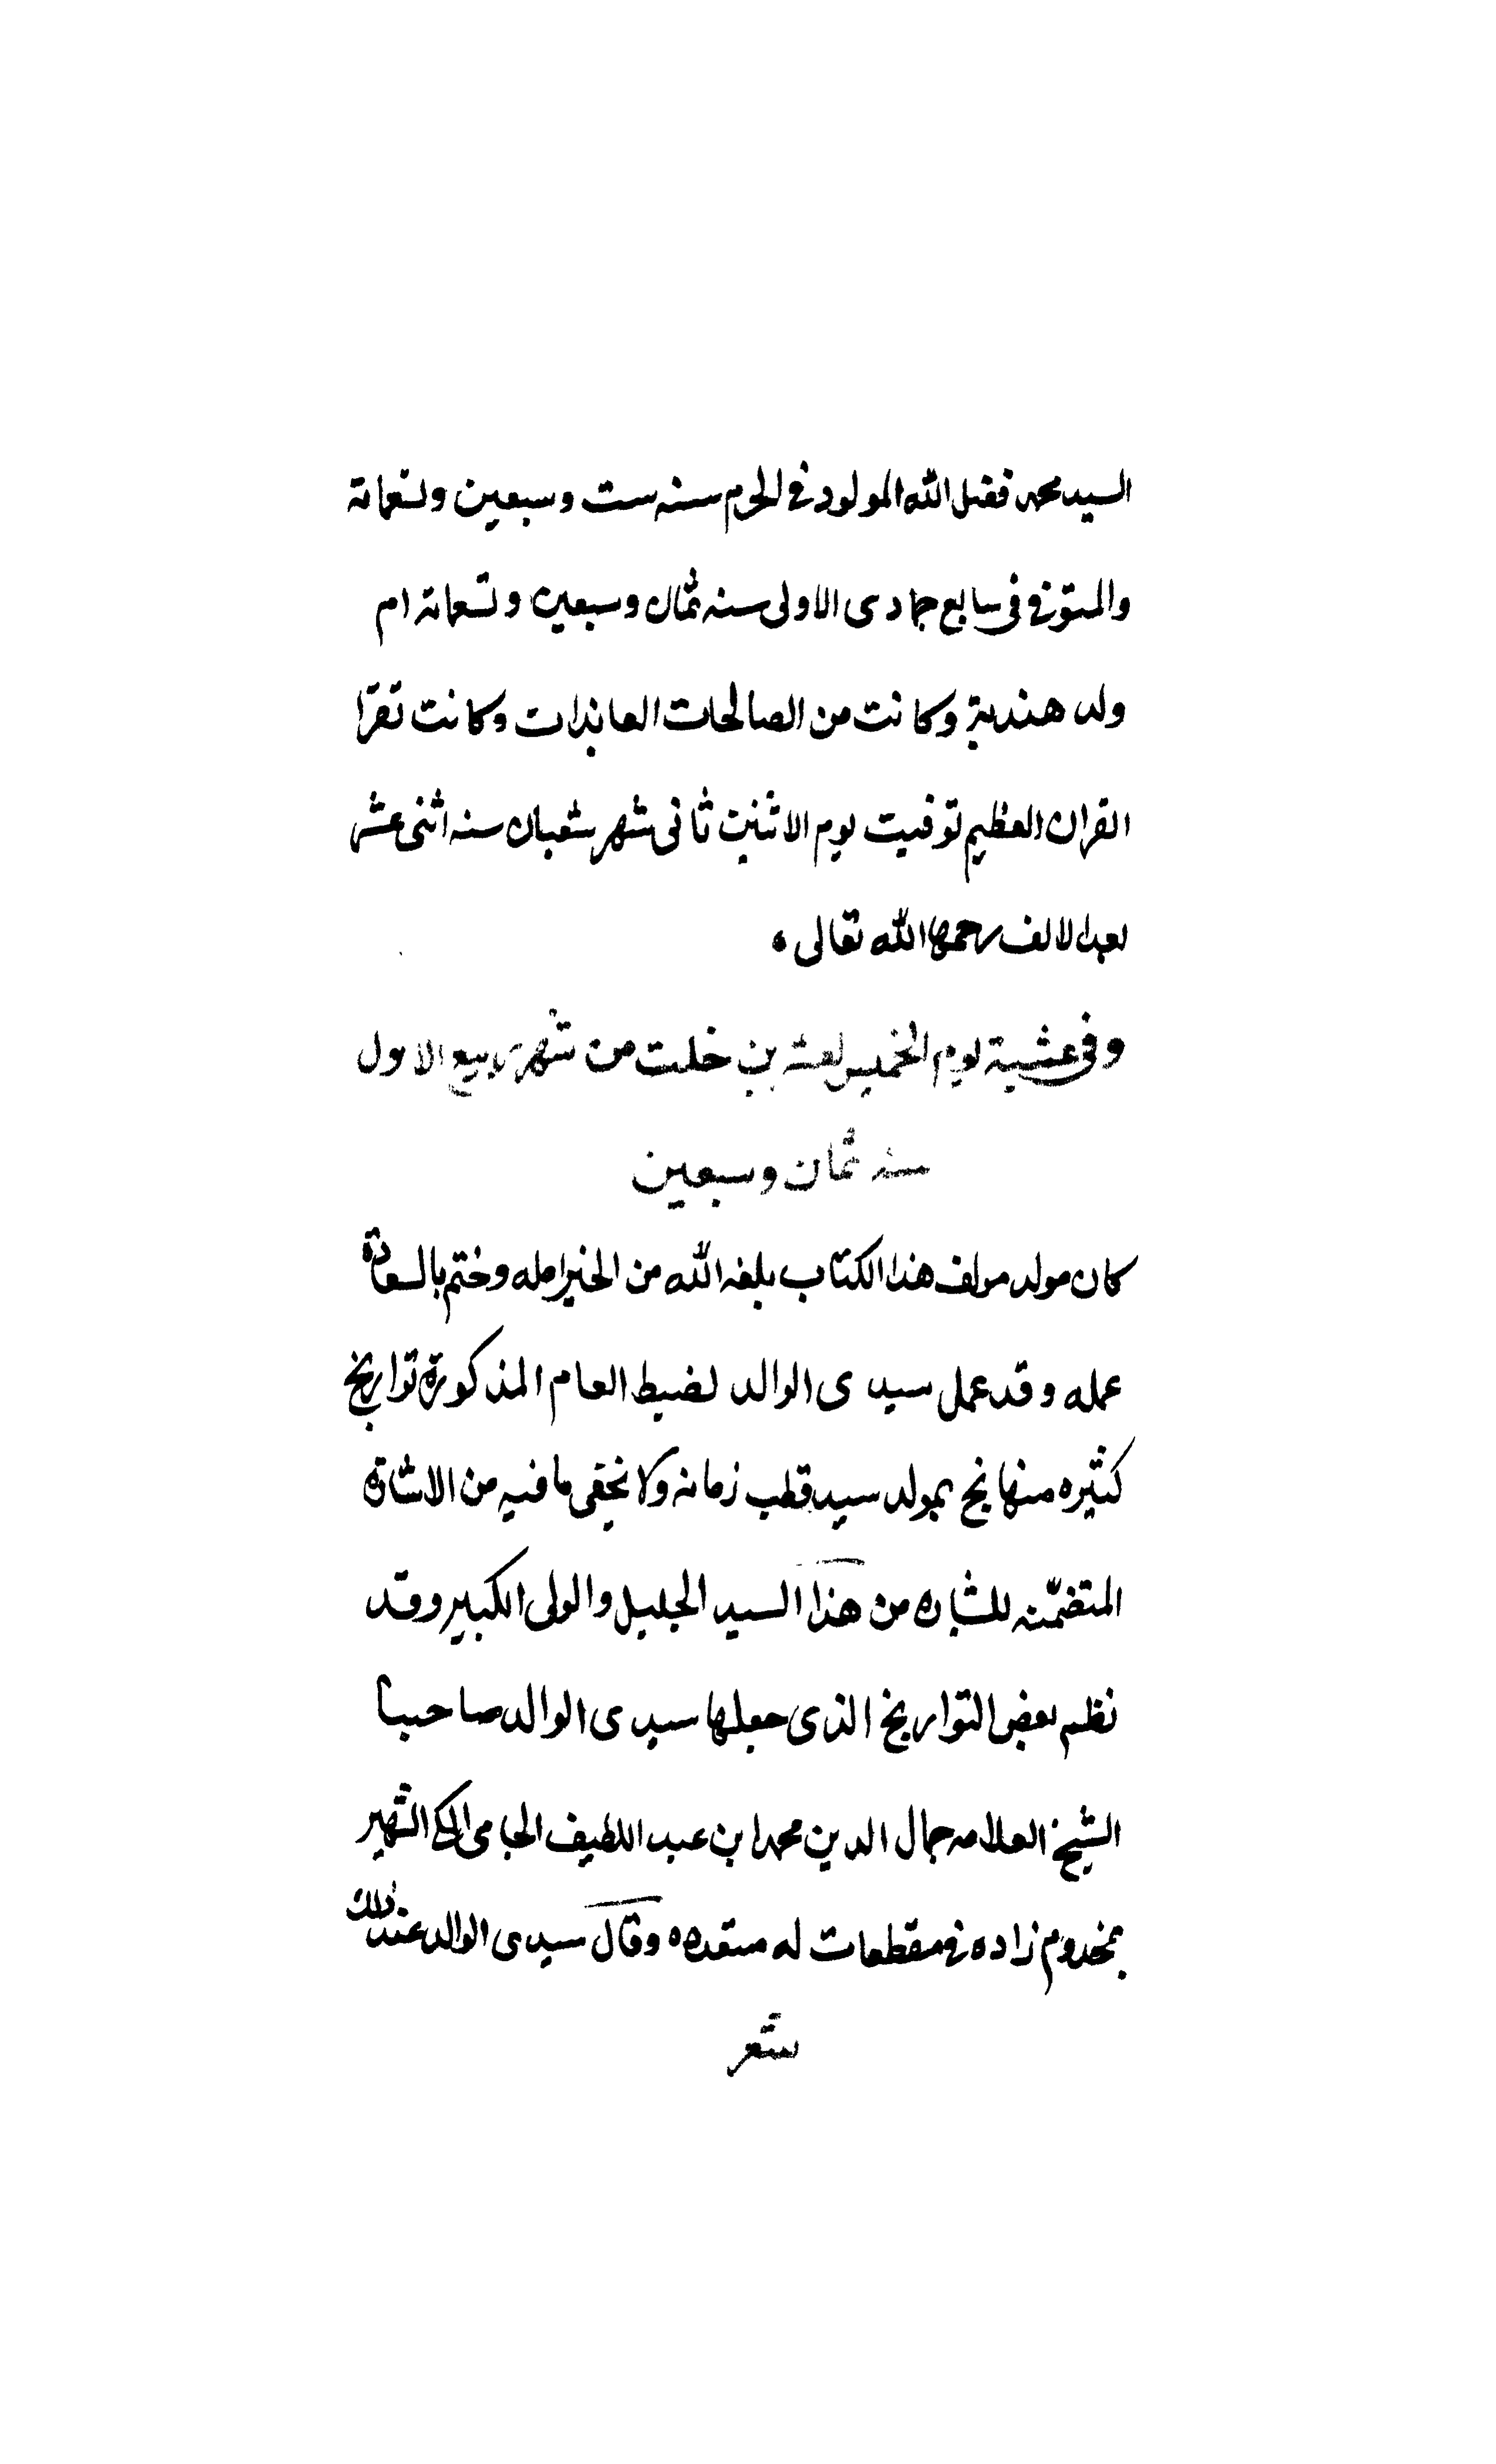 السيد محمد فضل الله المولود في المحرم سنه ست وسبعين وتسعمائة
والمتوفي في سابع جمادى الاولى سنه ثمان وسبعين وتسعمائة ام
ولد هندية وكانت من الصالحات العابدات وكانت تقرا
القران العظيم توفيت يوم الاثنين ثاني شهر شعبان سنه اثنى عشر
بعد الالف رحمها الله تعالى
وفي عشية يوم الخميس لعشرين خلت من شهر ربيع الاول
سنه ثمان وسبعين
كان مولد مولف هذا الكتاب بلغه الله من الخير امله وختم بالسعادة
عمله وقد عمل سيدى الوالد لضبط العام المذكورة تواريخ
كثيره منها نج بمولد سيد قطب زمانه ولا يخفى ما فيه من الاشارة
المتضمّنه للبشاره من هذا السيد الجليل والولى الكبير وقد
نظم بعض التواريخ الذى جعلها سيدى الوالد صاحبنا
الشيخ العلامه جمال الدين محمد ابن عبد اللطيف الجامى المكي الشهير
بمخدوم زاده في مقطعات له متعدده وقال سيدى الوالد عند ذلك
شعر